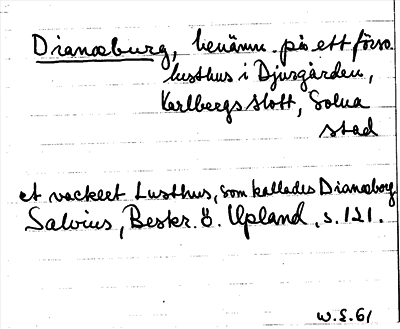 Dianæburg, benämn. på ett försv.
lusthus i Djurgården,
Karlbergs slott, Solna
stad
et vackert Lusthus, som kallades Dianæborg
Salvius, Beskr. ö. Upland, s. 121.
W.L.61